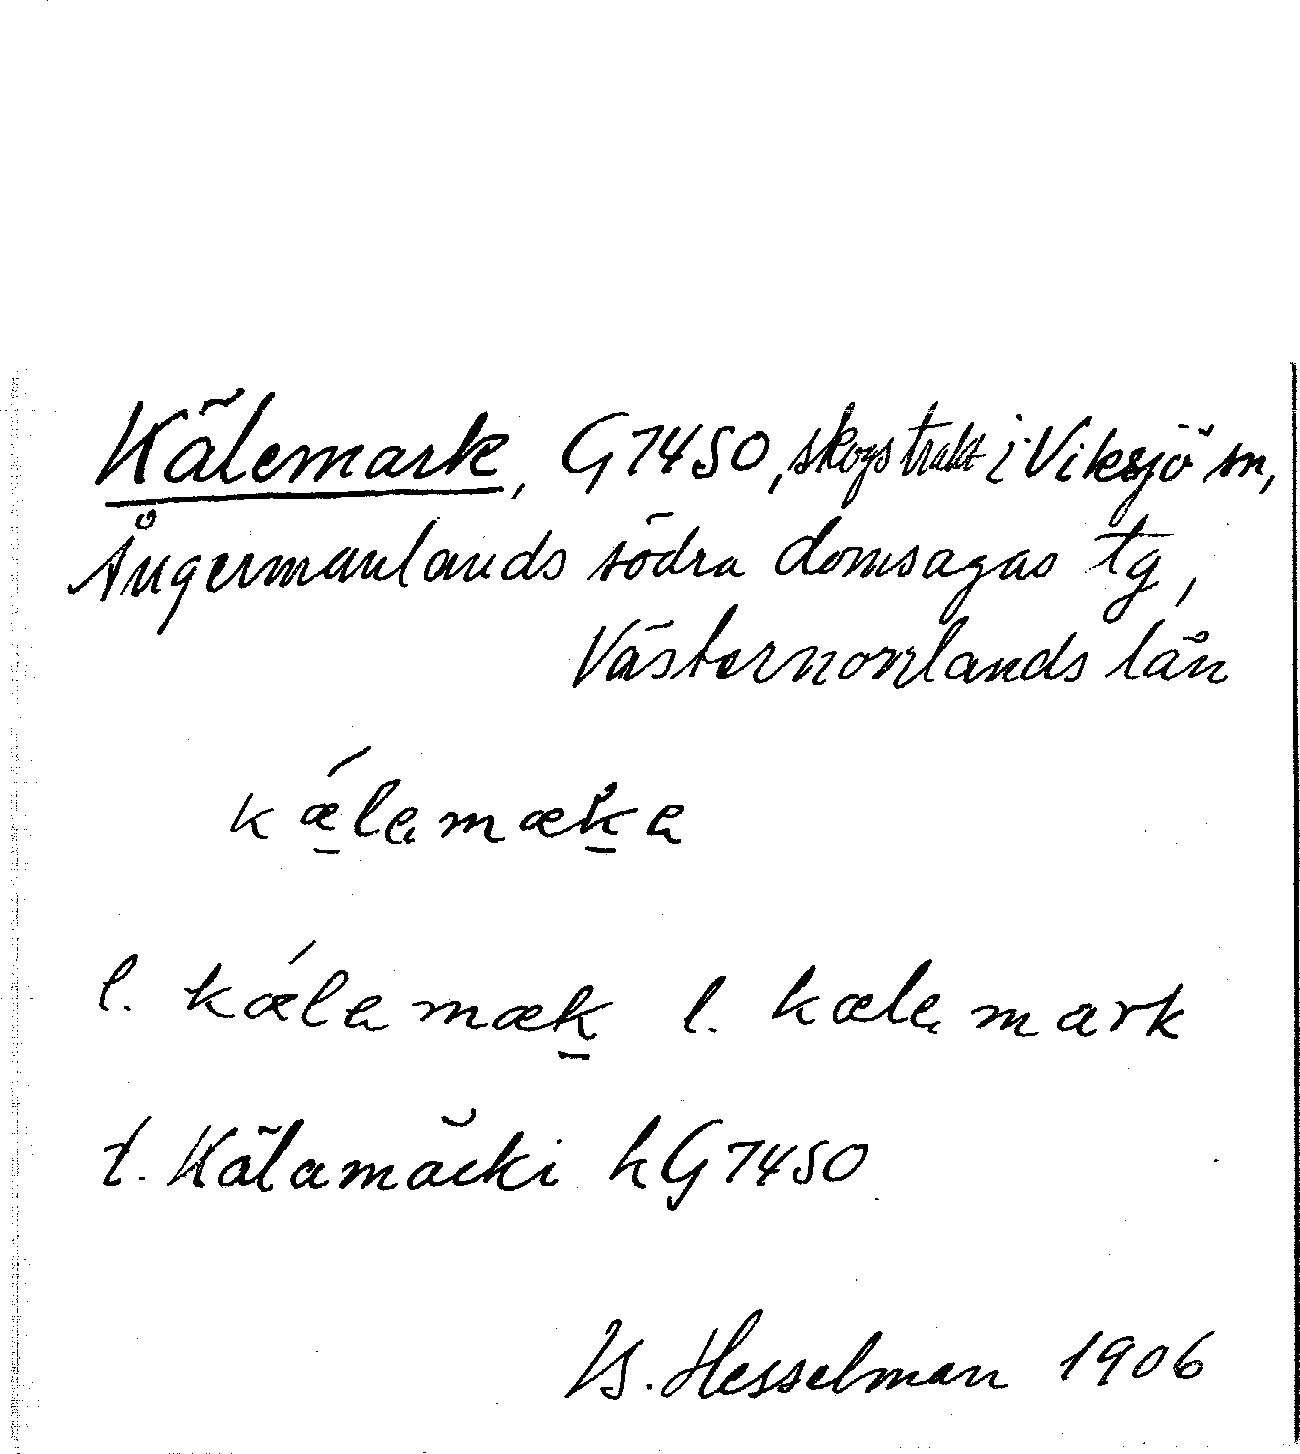 Kälemark, G7450, skogstrakt i Viksjö sn,
Ångermanlands södra domsagas tg,
Västernorrlands län
kǽlemæka
l. kǽlemæk l. kælemark
t. Kälamäcki hG7450
B. Hesselman 1906